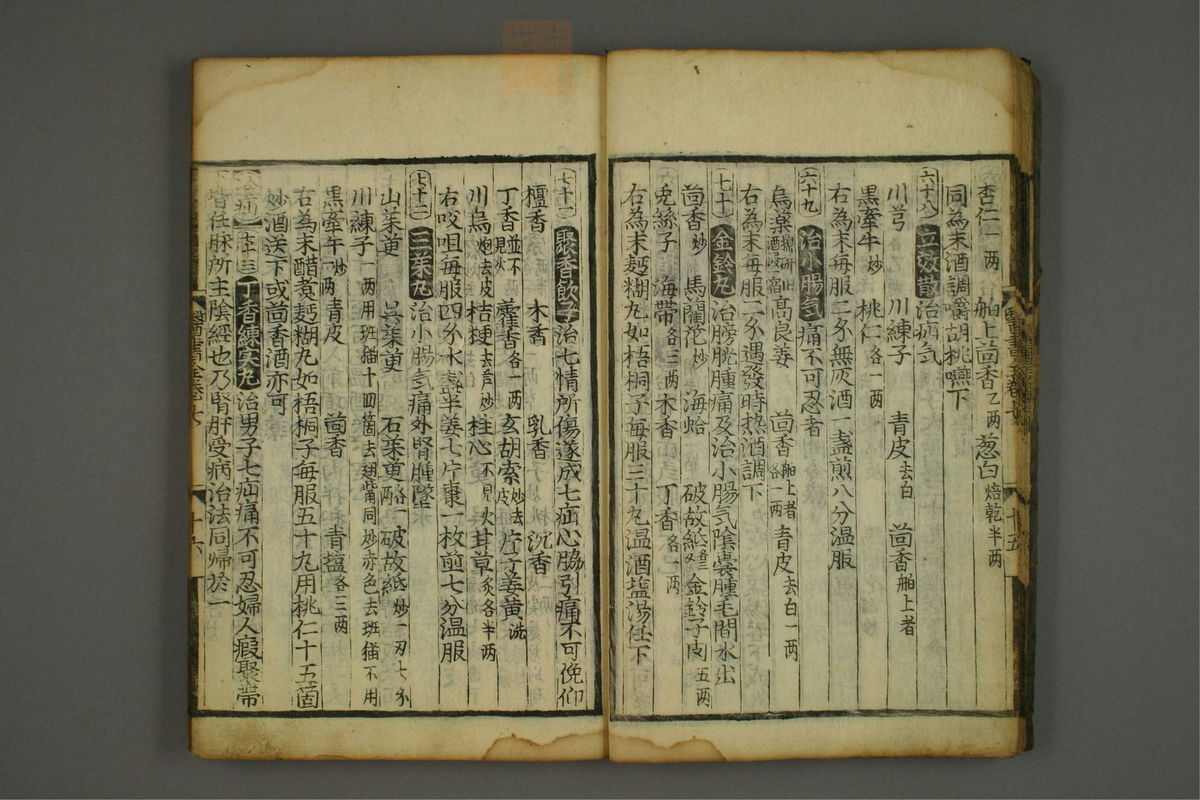 杏仁一两 舶上茴香乙两 葱白焙乾半两
同為末酒調嚼胡桃嚥下
六十八 立效散 治疝气
川芎 川練子 青皮去白 茴香舶上者
黒牽牛炒 桃仁各一两
右為末每服二分無灰酒一盏煎八分温服
六十九 治小腸气 痛不可忍者
烏薬 酒浸一宿 高良姜 茴香舶上者各一两 青皮去白一两
右為末每服二分遇發時热酒調下
七十 金鈴丸 治膀胱腫痛及治小腸气陰嚢腫毛間水出
茴香炒 馬藺花炒 海蛤 破故紙 金鈴子皮五两
兎絲子 海帶各三两 木香 丁香各一两
右為末麪糊丸如梧桐子每服三十丸温酒塩湯任下
七十一 聚香飲子 治七情所傷遂成七疝心脇引痛不可俛仰
檀香 木香 乳香 沉香
丁香並不見火 藿香各一两 玄胡索炒去皮 片子姜黄洗
川烏炮去皮 桔梗去芦炒 桂心不見火 甘草炙各半两
右㕮咀每服四分水盏半姜七片棗一枚煎七分温服
七十二 三茱丸 治小腸气痛外腎腫墜
山茱萸 吳茱萸 石茱萸各一两 破故紙炒一两七分
川練子一两用班猫十四箇去翅嘴同炒赤色去班猫不用
黒牽牛炒一两 青皮 茴香 青塩各三两
右為末醋煑麪糊丸如梧桐子每服五十丸用桃仁十五箇
妙酒送下或茴香酒亦可
七十三 丁香練実丸 治男子七疝痛不可忍婦人瘕聚帶
皆任脉所主陰經也乃腎肝受病治法同歸於一
十五
十六